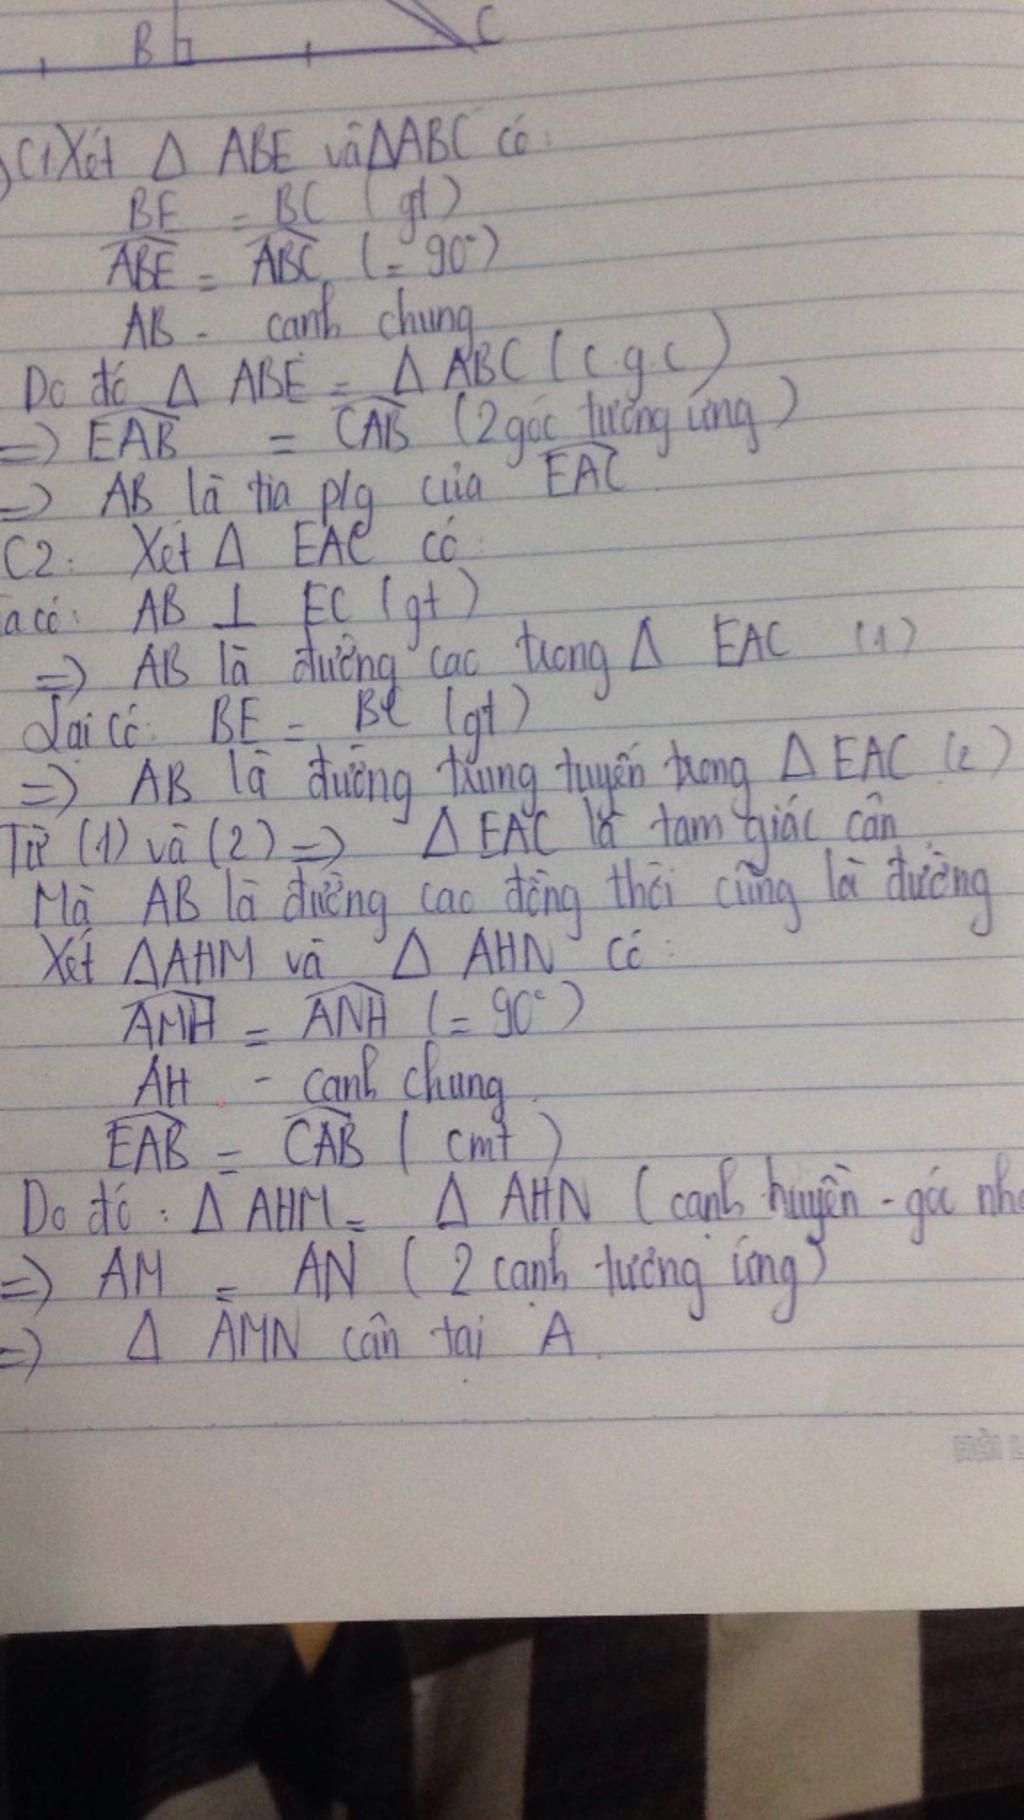 B C
C1. Xét Δ ABE và ΔABC có:
BE = BC (gt)
ABE = ABC (= 90°)
AB - cạnh chung
Do đó Δ ABE = Δ ABC (c.g.c)
=> EAB = CAB (2 góc tương ứng)
=> AB là tia p/g của EAC
C2: Xét Δ EAC có
a có: AB ⊥ EC (gt)
=> AB là đường cao trong Δ EAC (1)
Lại có: BE = BC (gt)
=> AB là đường trung tuyến trong Δ EAC (2)
Từ (1) và (2) => Δ EAC là tam giác cân
Mà AB là đường cao đồng thời cũng là đường
Xét ΔAHM và Δ AHN có:
AMH = ANH (= 90°)
AH - cạnh chung.
EAB = CAB (cmt)
Do đó: Δ AHM = Δ AHN (cạnh huyền - góc nh
=> AM = AN (2 cạnh tương ứng)
=> Δ AMN cân tại A.